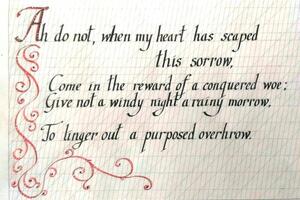 Ah do not, when my heart has scaped
this sorrow,
Come in the reward of a conquered woe;
Give not a windy night a rainy morrow,
To linger out a purposed overhrow.